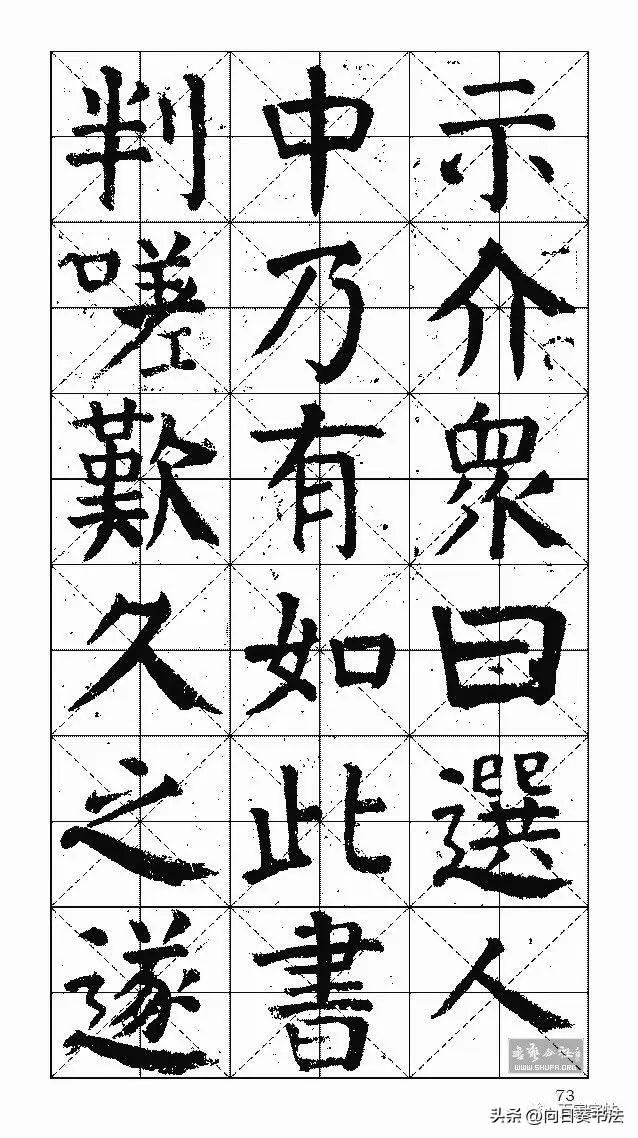 示介衆曰選人
中乃有如此書
判嗟歎久之遂
WWW.SHUFA.ORG
73
头条 @向日葵书法